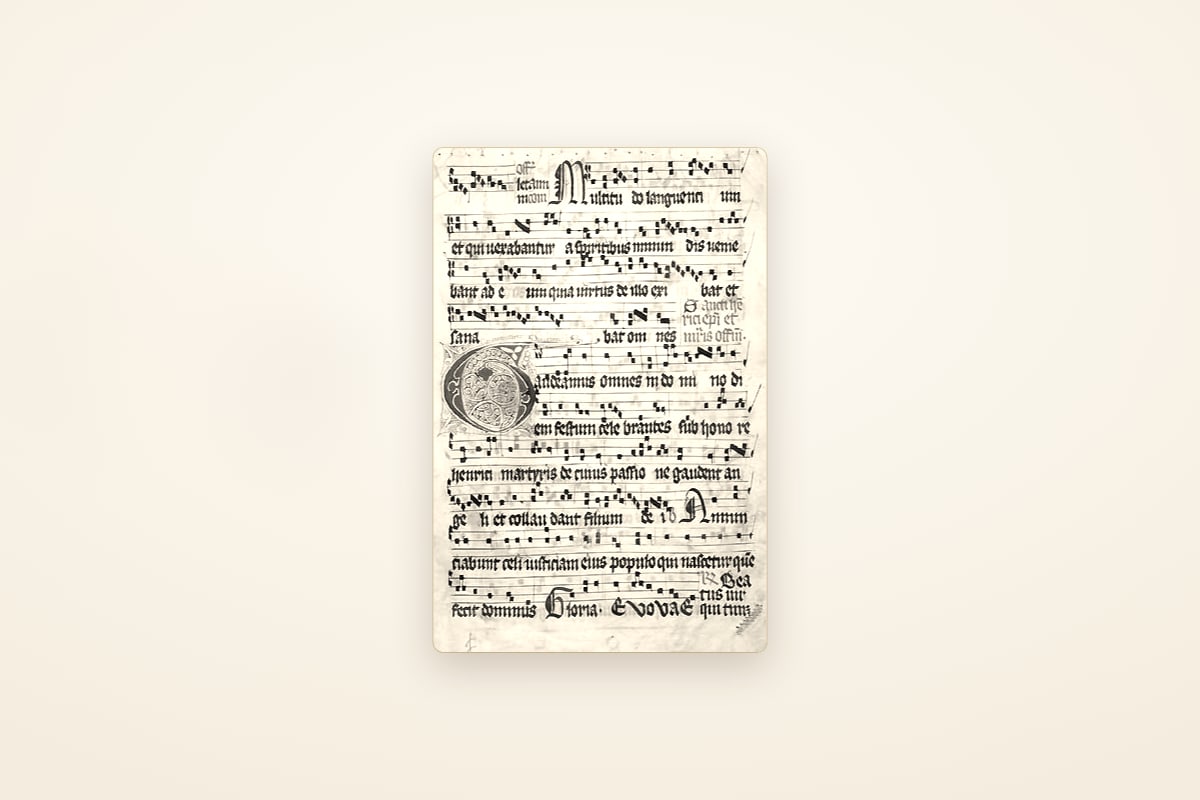 Multitu do languenti um
et qui vexabantur a spiritibus inmun dis venie
bant ad e um quia virtus de illo exi bat et
sana bat om nes
Gaudeamus omnes in do mi no di
em festum cele brantes sub hono re
henrici martyris de cuius passio ne gaudent an
ge li et collau dant filium de i Annun
ciabunt celi iusticiam eius populo qui nascetur que
fecit dominus Gloria. EVOVAE
Bea
tus vir
qui